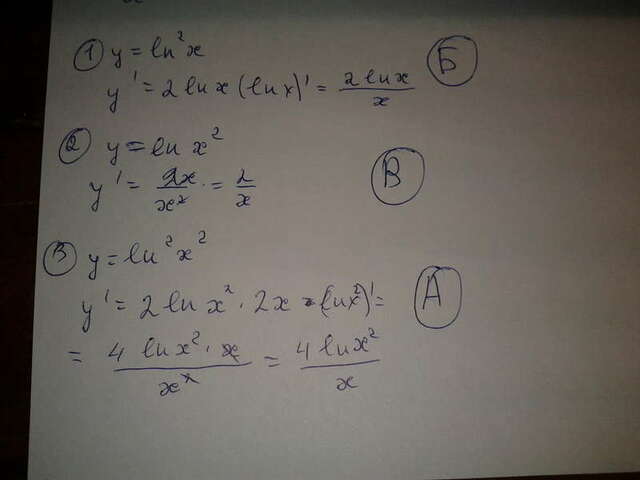 ① y = ln²x
y' = 2 ln x (ln x)' = 2 ln x / x Б
② y = ln x²
y' = 2x / x² = 2 / x В
③ y = ln² x²
y' = 2 ln x² · 2x · (ln x²)' = А
= 4 ln x² · x / x² = 4 ln x² / x